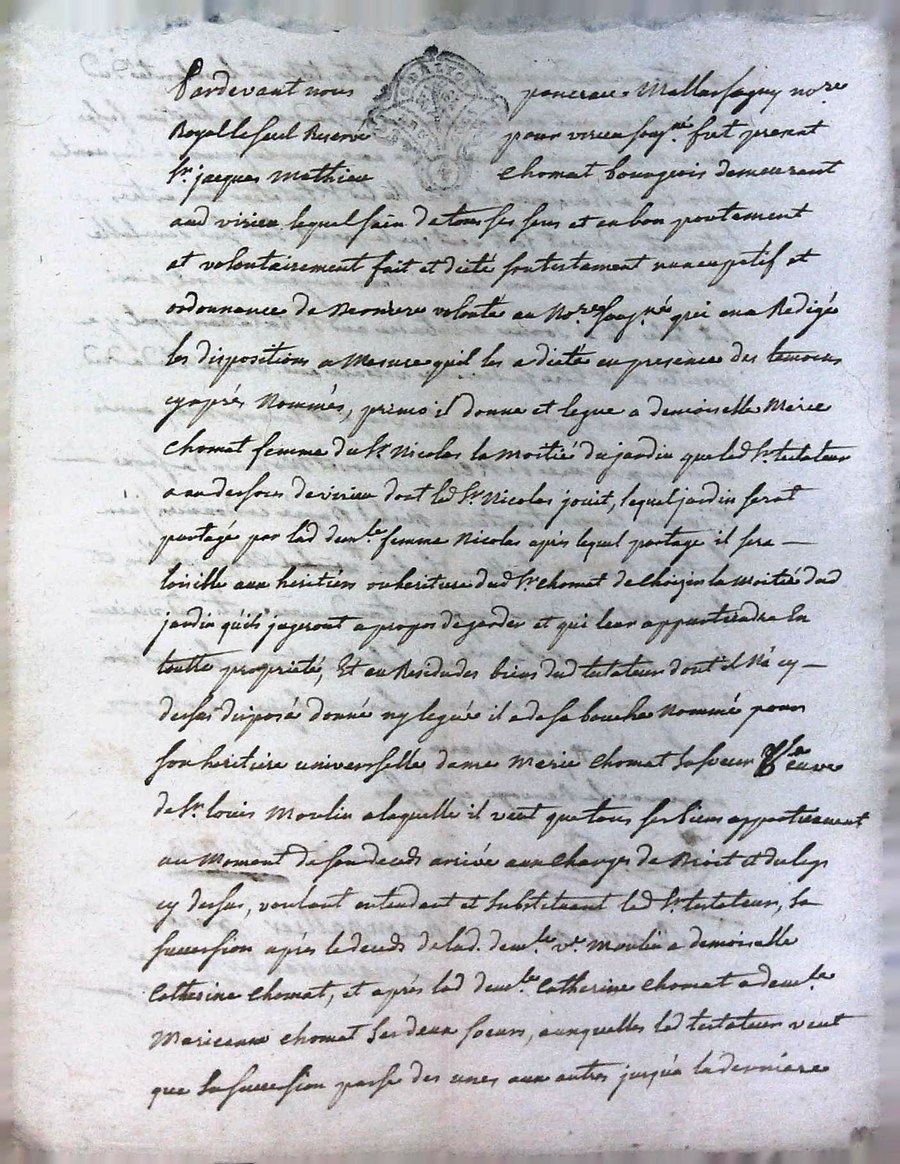 Pardevant nous pancrace Mallassagny no.re
Royal le seul Reservé pour virieu soug.né fut present
S.r jacques Mathieu Chomat bourgeois demeurant
aud virieu lequel sain de tous ses sens et en bon portement
et volontairement fait et dicté son testament nuncupatif et
ordonnance de derniere volonté au No.re soug.né qui en a Redigé
les dispositions a Mesure quil les a dicté en presence des temoins
cy après Nommés, primo il donne et legue a demoiselle Marie
Chomat femme du S.r Nicolas la moitié du jardin que led S.r testateur
a au dessous de virieu dont led S.r Nicolas jouit, lequel jardin serat
partagé par lad dem.lle femme Nicolas après lequel partage il sera
loisible aux heritiers ou heritiere dud S.r Chomat de choisir la moitié dud
jardin quils jugeront a propos de garder et qui leur appartiendra en
toutte proprieté, Et au Residu des biens dud testateur dont il N'a cy
dessus disposé donné ny legué il a de sa bouche Nommé pour
son heritiere universelle dame Marie Chomat sa soeur veuve
de S.r Louis Moulin a laquelle il veut que tous ses biens appartiennent
au Moment de son deces arrivé aux charges de Droit et du legs
cy dessus, voulant entendant et substituant led S.r testateur, sa
succession après le deces de lad. dem.lle v.e Moulin a demoiselle
Catherine Chomat, et après lad dem.lle Catherine Chomat a dem.lle
Chomat ses deux soeurs, auxquelles led testateur veut
que sa succession passe des unes aux autres jusqu'a la derniere